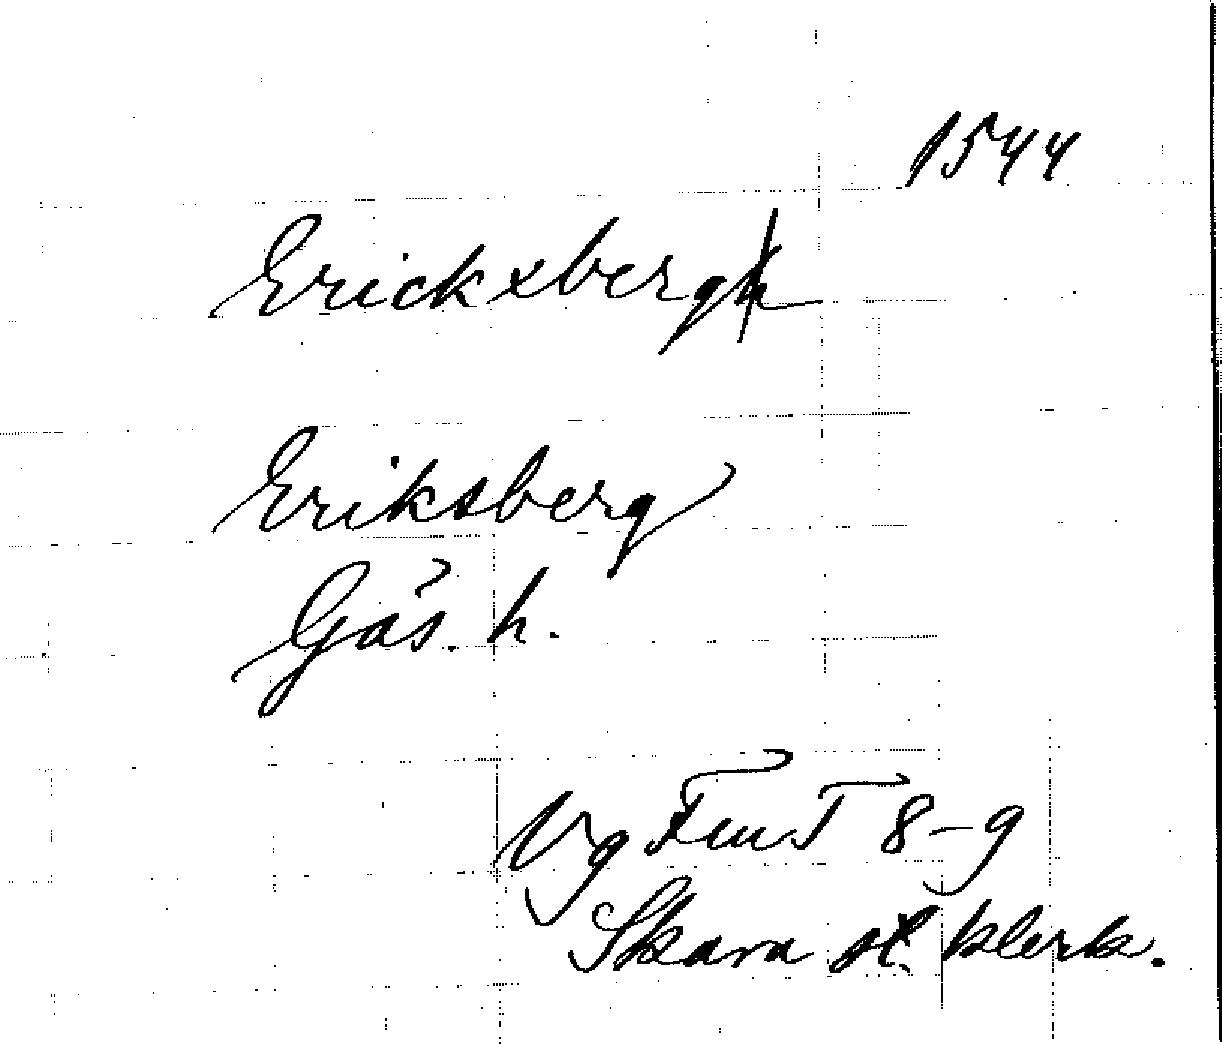 1544
Ericksbergh
Eriksberg
Gäs. h.
Vg FmT 8-9
Skara st. klerk.